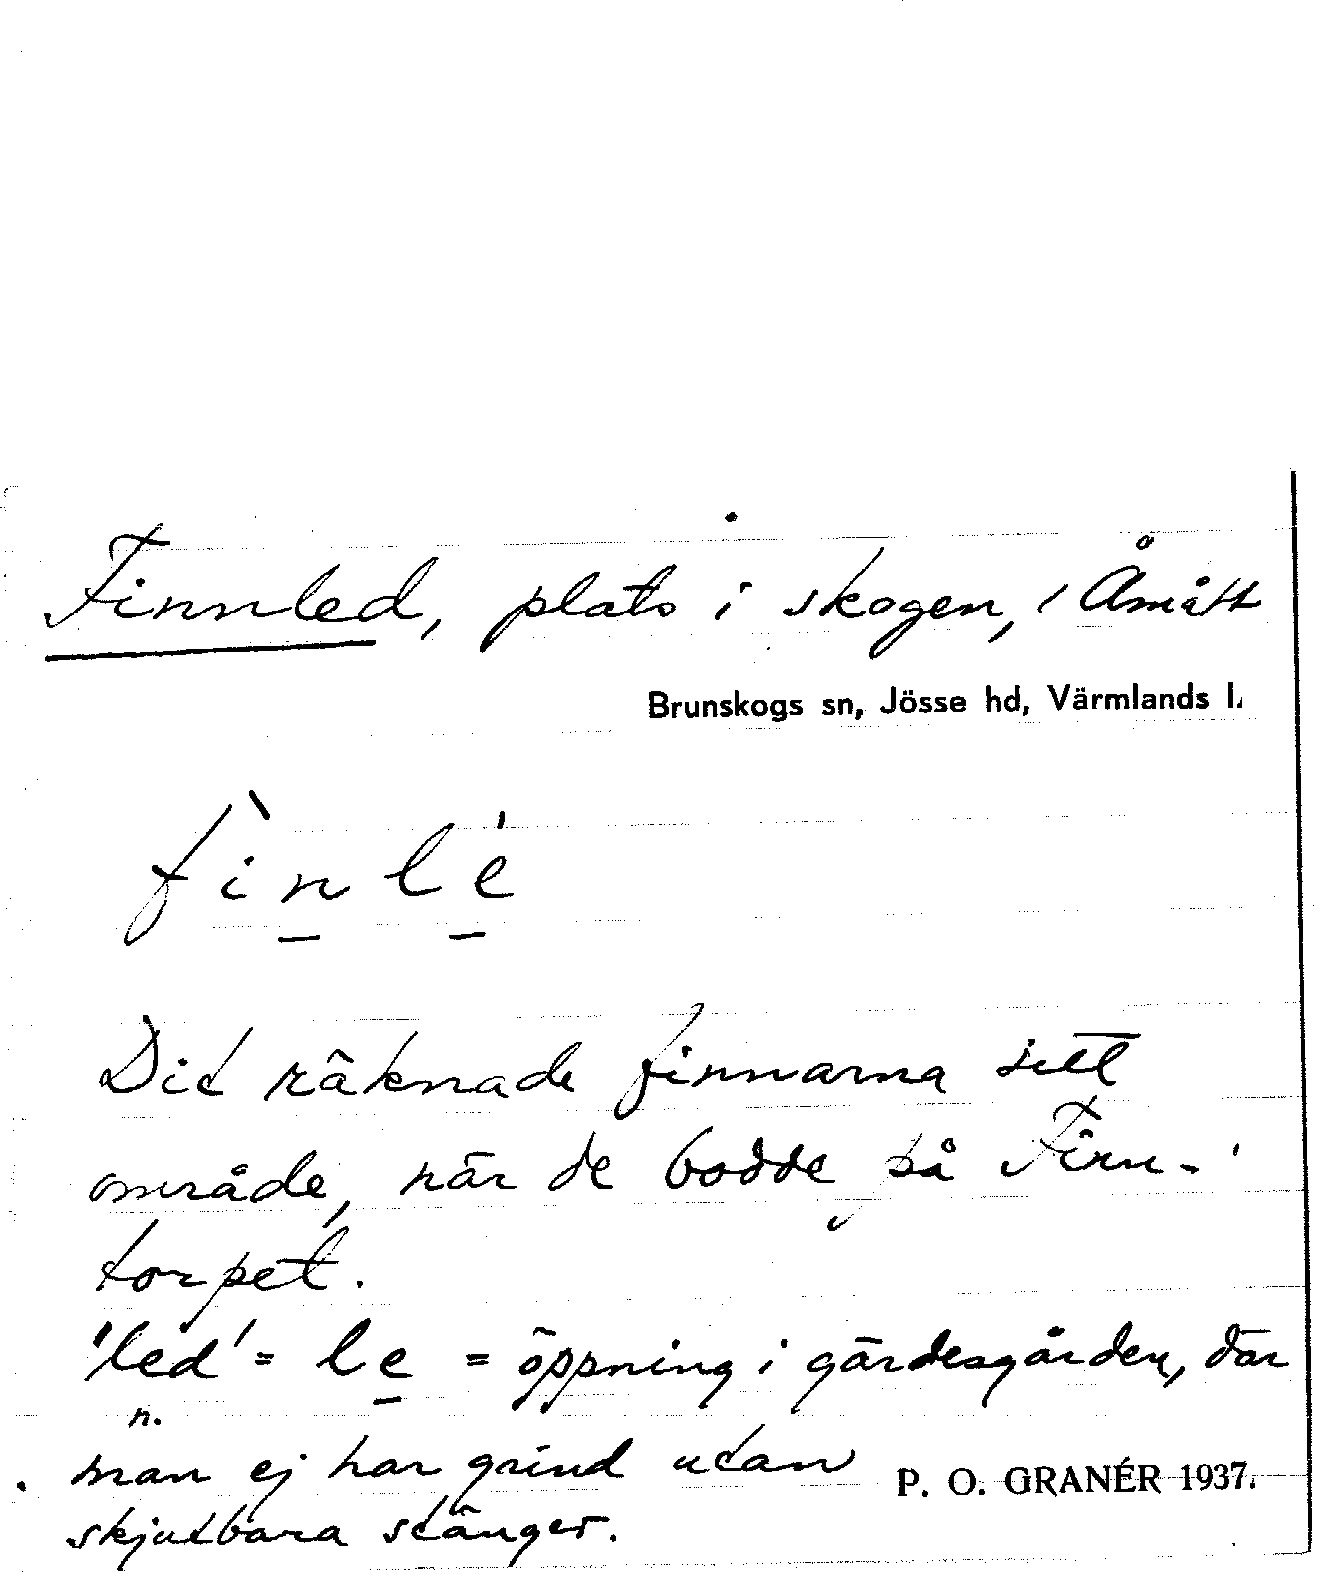 Finnled, plats i skogen, i Åmått
Brunskogs sn, Jösse hd, Värmlands l.
fìnlé
Dit räknade finnarna sitt
område, när de bodde på Finn-
torpet.
'led' = le = öppning i gärdesgården, där
n.
man ej har grind utan
P. O. GRANÉR 1937.
skjutbara stänger.